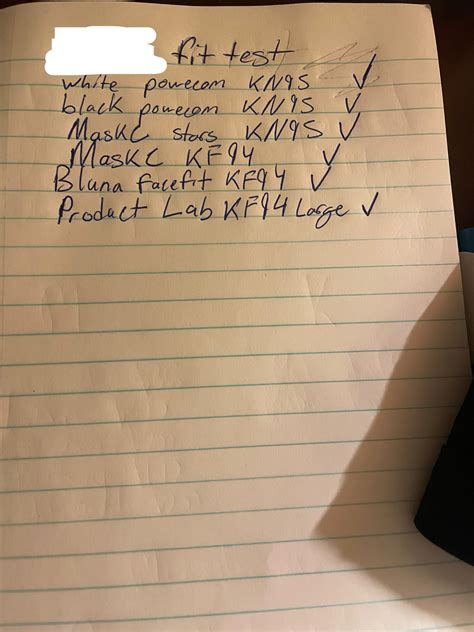 fit test
white powecom KN95 ✓
black powecom KN95 ✓
MaskC stars KN95 ✓
MaskC KF94 ✓
Bluna facefit KF94 ✓
Product Lab KF94 Large ✓